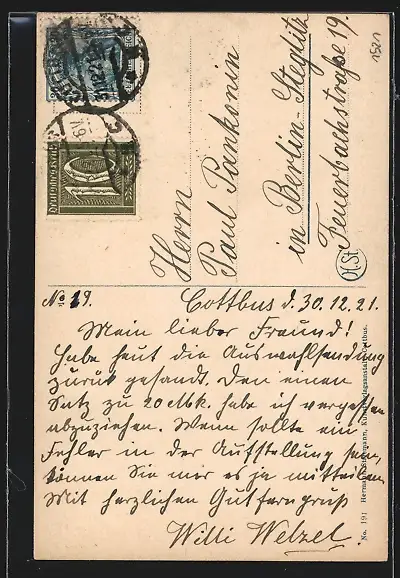 Herrn
Paul Pankonin
in Berlin-Steglitz
Feuerbachstraße 19.
1521
Deutsches Reich
10
No 19.
Cottbus d. 30.12.21.
Mein lieber Freund!
Habe heut die Auswahlsendung
zurück gesandt. Den einen
Satz zu 20 Mk. habe ich vergessen
abzuziehen. Wenn sollte ein
Fehler in der Aufstellung sein,
können Sie mir es ja mitteilen.
Mit herzlichen Gutferngruß
Willi Welzel.
No. 191 Hermann